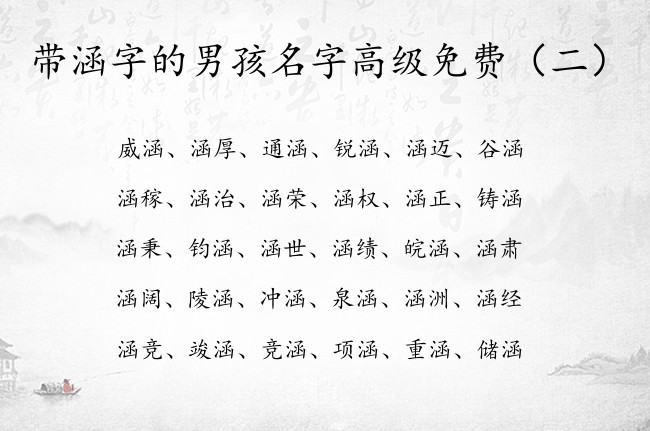 带涵字的男孩名字高级免费（二）
威涵、涵厚、通涵、锐涵、涵迈、谷涵
涵稼、涵治、涵荣、涵权、涵正、铸涵
涵秉、钧涵、涵世、涵绩、皖涵、涵肃
涵阔、陵涵、冲涵、泉涵、涵洲、涵经
涵竞、竣涵、竞涵、项涵、重涵、储涵